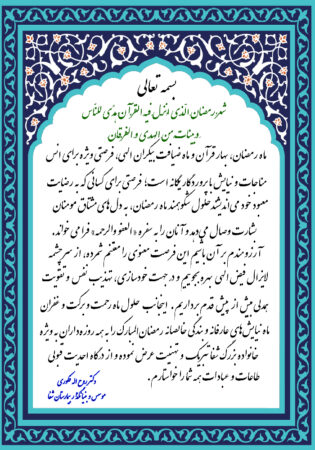 بسمه تعالی
شهر رمضان الذی انزل فیه القرآن هدی للناس
و بینات من الهدی و الفرقان
ماه رمضان، بهار قرآن و ماه ضیافت بیکران الهی، فرصتی ویژه برای انس
مناجات و نیایش با پروردگار یگانه است؛ فرصتی برای کسانی که به رضایت
معبود خود می‌اندیشند حلول شکوهمند ماه رمضان، به دل‌های مشتاق مومنان
بشارت وصال می‌دهد و آنان را به سفره «العفو والرحمه» فرا می خواند.
آرزومندم بر آن باشیم این فرصت معنوی را مغتنم شمرده، از سرچشمه
لایزال فیض الهی بهره بجوییم و در جهت خودسازی، تهذیب نفس و تقویت
همدلی بیش از پیش قدم برداریم. اینجانب حلول ماه رحمت و برکت و غفران
ماه نیایش های عارفانه و بندگی خالصانه رمضان المبارک را به همه روزه‌داران به ویژه
خانواده بزرگ شفا تبریک و تهنیت عرض نموده و از درگاه احدیت قبولی
طاعات و عبادات همه شما را خواستارم.
دکتر روح اله
موسس و بنیانگذار بیمارستان شفا